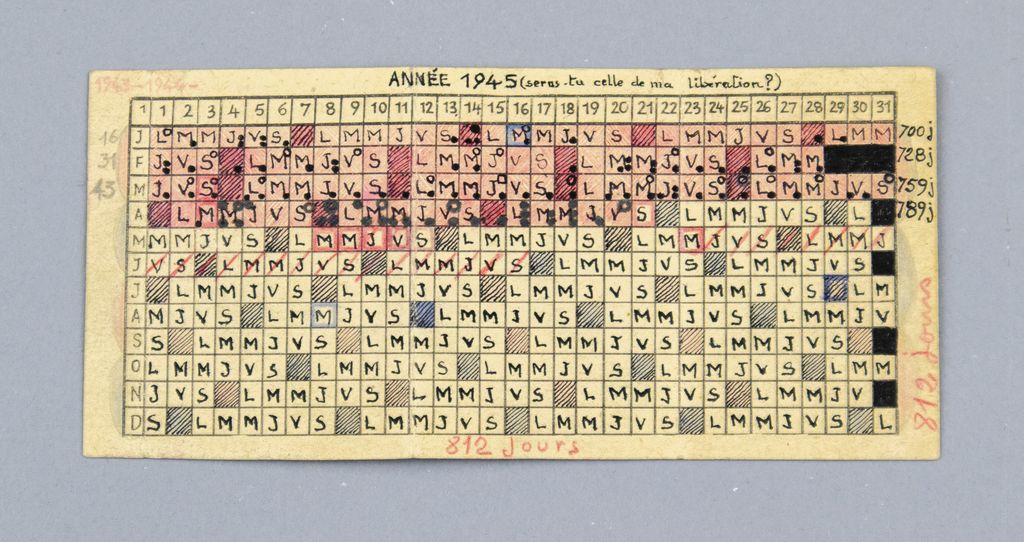 1943-1944-
ANNÉE 1945 (seras-tu celle de ma libération?)
1 1 2 3 4 5 6 7 8 9 10 11 12 13 14 15 16 17 18 19 20 21 22 23 24 25 26 27 28 29 30 31
16 J L M M J V S L M M J V S L M M J V S L M M J V S L M M 700 j
31 F J V S L M M J V S L M M J V S L M M J V S L M M 728 j
M J V S L M M J V S L M M J V S L M M J V S L M M J V S 759 j
A L M M J V S L M M J V S L M M J V S L M M J V S L 789 j
M M M J V S L M M J V S L M M J V S L M M J V S L M M J
J V S L M M J V S L M M J V S L M M J V S L M M J V S
J L M M J V S L M M J V S L M M J V S L M M J V S L M
A M J V S L M M J V S L M M J V S L M M J V S L M M J V
S S L M M J V S L M M J V S L M M J V S L M M J V S
O L M M J V S L M M J V S L M M J V S L M M J V S L M M
N J V S L M M J V S L M M J V S L M M J V S L M M J V
D S L M M J V S L M M J V S L M M J V S L M M J V S L
812 Jours
812 jours